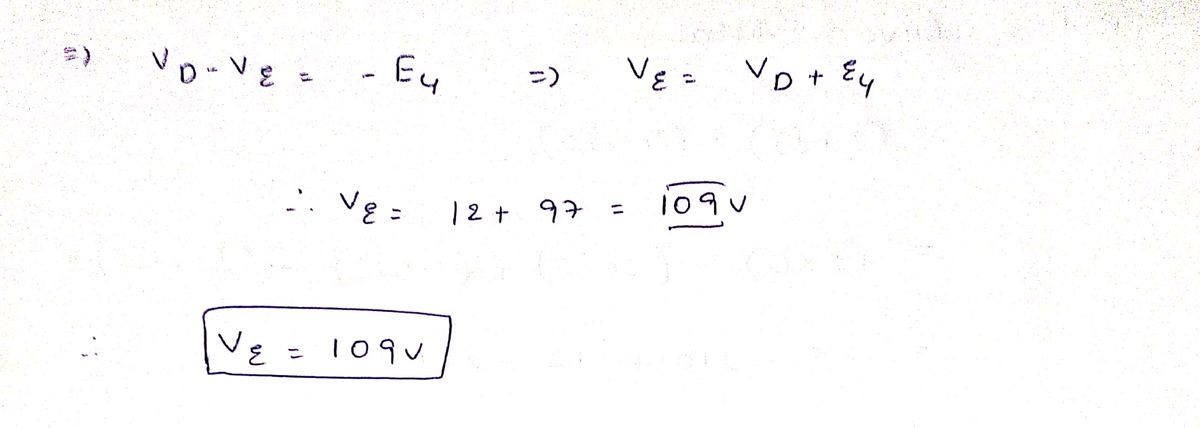 =) V_D - V_E = - E_4 =) V_E = V_D + E_4
∴ V_E = 12 + 97 = 109 V
∴ V_E = 109 V